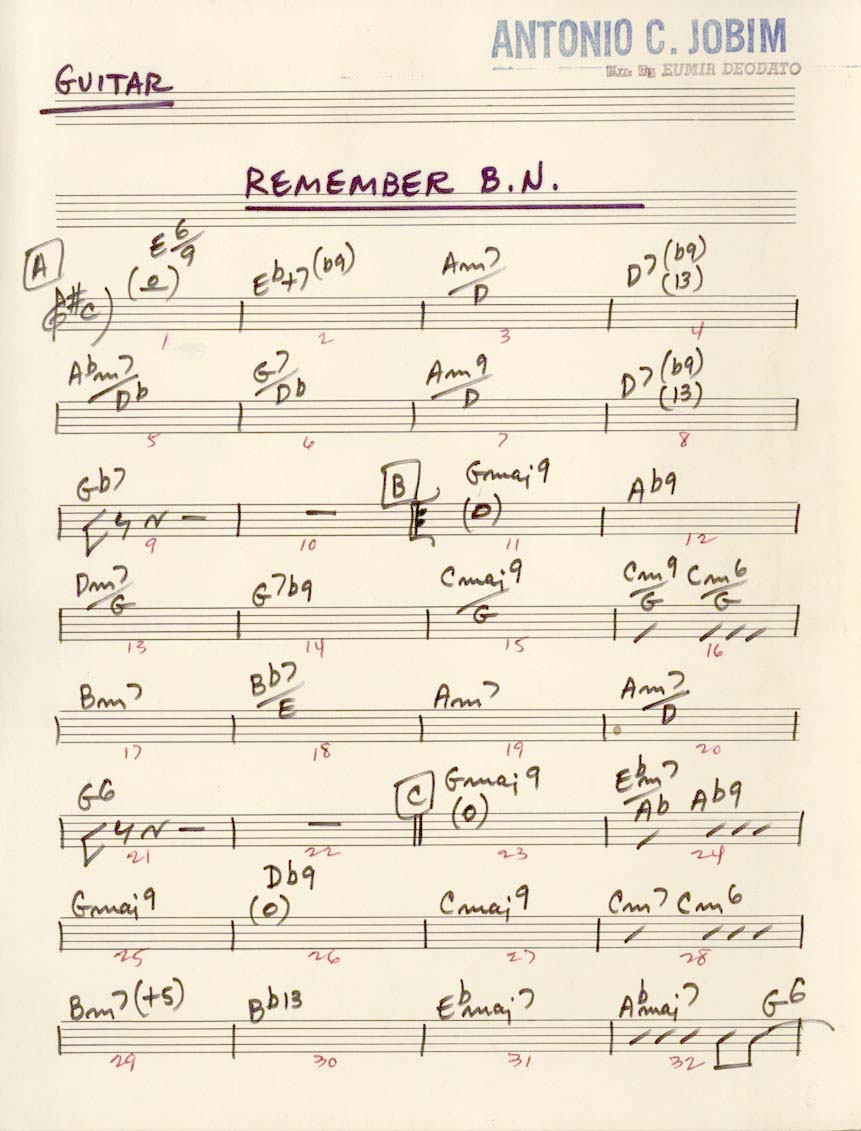 ANTONIO C. JOBIM
Arr. By EUMIR DEODATO
GUITAR
REMEMBER B.N.
A E6/9 Eb+7(b9) Am7/D D7(b9)(13)
1 2 3 4
Abm7/Db G7/Db Am9/D D7(b9)(13)
5 6 7 8
Gb7 B Gmaj9 Ab9
9 10 11 12
Dm7/G G7b9 Cmaj9/G Cm9/G Cm6/G
13 14 15 16
Bm7 Bb7/E Am7 Am7/D
17 18 19 20
G6 C Gmaj9 Ebm7/Ab Ab9
21 22 23 24
Gmaj9 Db9 Cmaj9 Cm7 Cm6
25 26 27 28
Bm7(+5) Bb13 Ebmaj7 Abmaj7 G6
29 30 31 32